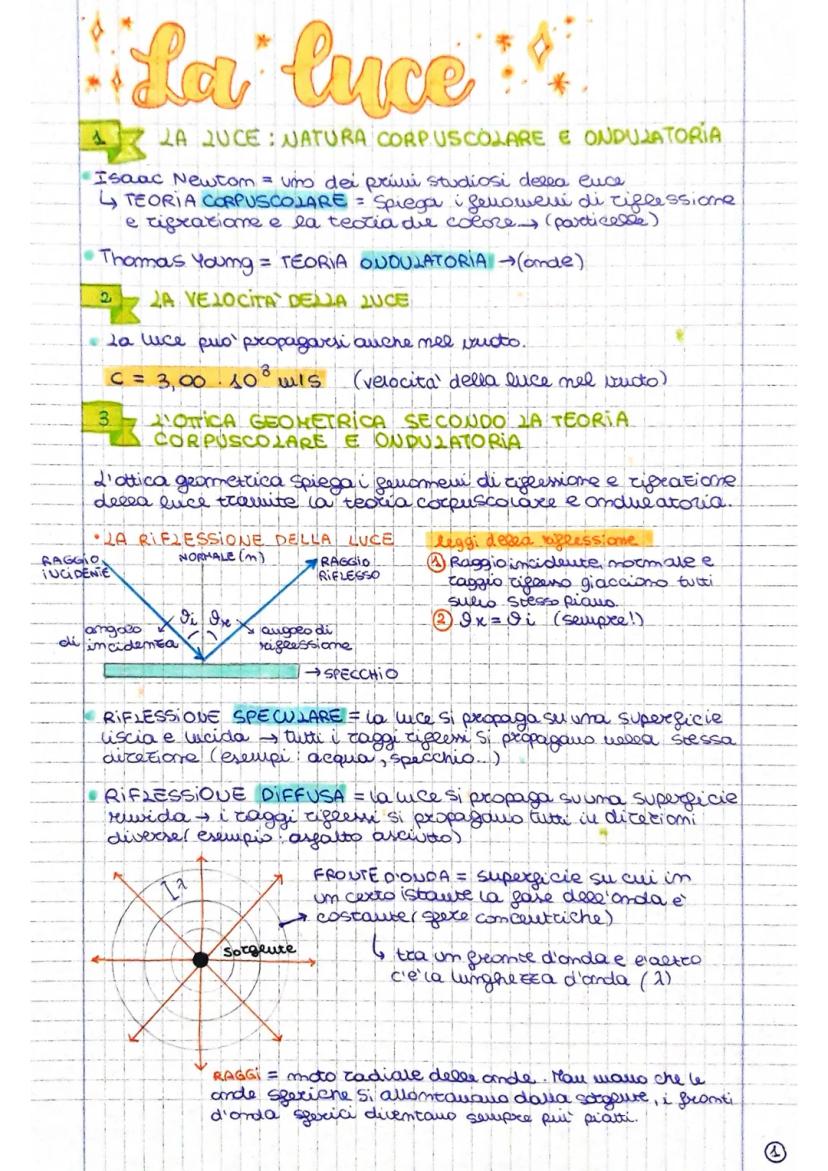 La luce
1 LA LUCE : NATURA CORPUSCOLARE E ONDULATORIA
Isaac Newton = uno dei primi studiosi della luce
↳ TEORIA CORPUSCOLARE = Spiega i fenomeni di riflessione
e rifrazione e la teoria due colore → (particelle)
Thomas Young = TEORIA ONDULATORIA → (onde)
2 LA VELOCITA' DELLA LUCE
La luce puo' propagarsi anche nel vuoto.
C = 3,00 · 10⁸ m/s (velocita' della luce nel vuoto)
3 L'OTTICA GEOMETRICA SECONDO LA TEORIA
CORPUSCOLARE E ONDULATORIA
L'ottica geometrica spiega i fenomeni di riflessione e rifrazione
della luce tramite la teoria corpuscolare e ondulatoria.
• LA RIFLESSIONE DELLA LUCE
RAGGIO
INCIDENTE
NORMALE (n)
RAGGIO
RIFLESSO
θi θr
angolo
di incidenza
angolo di
riflessione
→ SPECCHIO
leggi della riflessione
1 Raggio incidente, normale e
raggio riflesso giacciono tutti
sullo stesso piano.
2 θr = θi (sempre!)
RIFLESSIONE SPECULARE = la luce si propaga su una superficie
liscia e lucida → tutti i raggi riflessi si propagano nella stessa
direzione (esempi : acqua, specchio...)
RIFLESSIONE DIFFUSA = la luce si propaga su una superficie
ruvida → i raggi riflessi si propagano tutti in direzioni
diverse( esempio : asfalto asciutto)
λ
sorgente
FRONTE D'ONDA = superficie su cui in
un certo istante la fase dell'onda e'
costante (sfere concentriche)
↳ tra un fronte d'onda e l'altro
c'e' la lunghezza d'onda (λ)
RAGGI = moto radiale delle onde. Man mano che le
onde sferiche si allontanano dalla sorgente, i fronti
d'onda sferici diventano sempre piu' piatti.
1